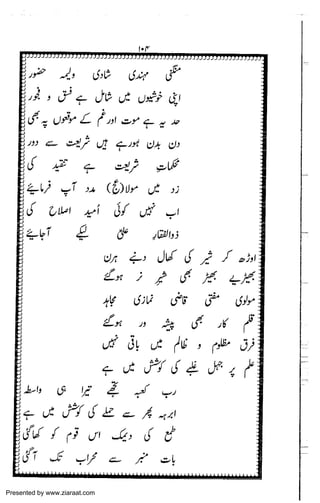 ۱۰۴
منگنی مہندی شادی ولیمہ حضور
اپنی خوشیوں میں شامل ہے فسق و فجور
حد یہ ہے موت اور غم کے موقعوں پہ بھی
دن بدن ہو رہے ہیں شریعت سے دور
نکہات شریعت ہے تنقید کی
زد میں مولا (عج) مدد آپ فرمائیے
اب نہیں کوئی اُمید اصلاح کی
ذوالفقار علی لیکے آجائیے
اوڑھ کر شیر کی کھال دنبے ہرن
بھیڑیے بھیڑ بھی شیر نر ہوگئے
مولوی مفتی قاضی نمازی مجاہد
قلم کار بھی پیشہ ور ہوگئے
فرق مظلوم و ظالم میں باقی نہیں
علم پر جہل غلبے کی کوشش میں ہے
رب کعبہ تجھے تیرا ہی واسطہ
ابرہہ پھر سے حملے کی کوشش میں ہے
طمع کی دیمک اس قوم کو کھا گئی
بات منبر سے محراب تک آ گئی
Presented by www.ziaraat.com